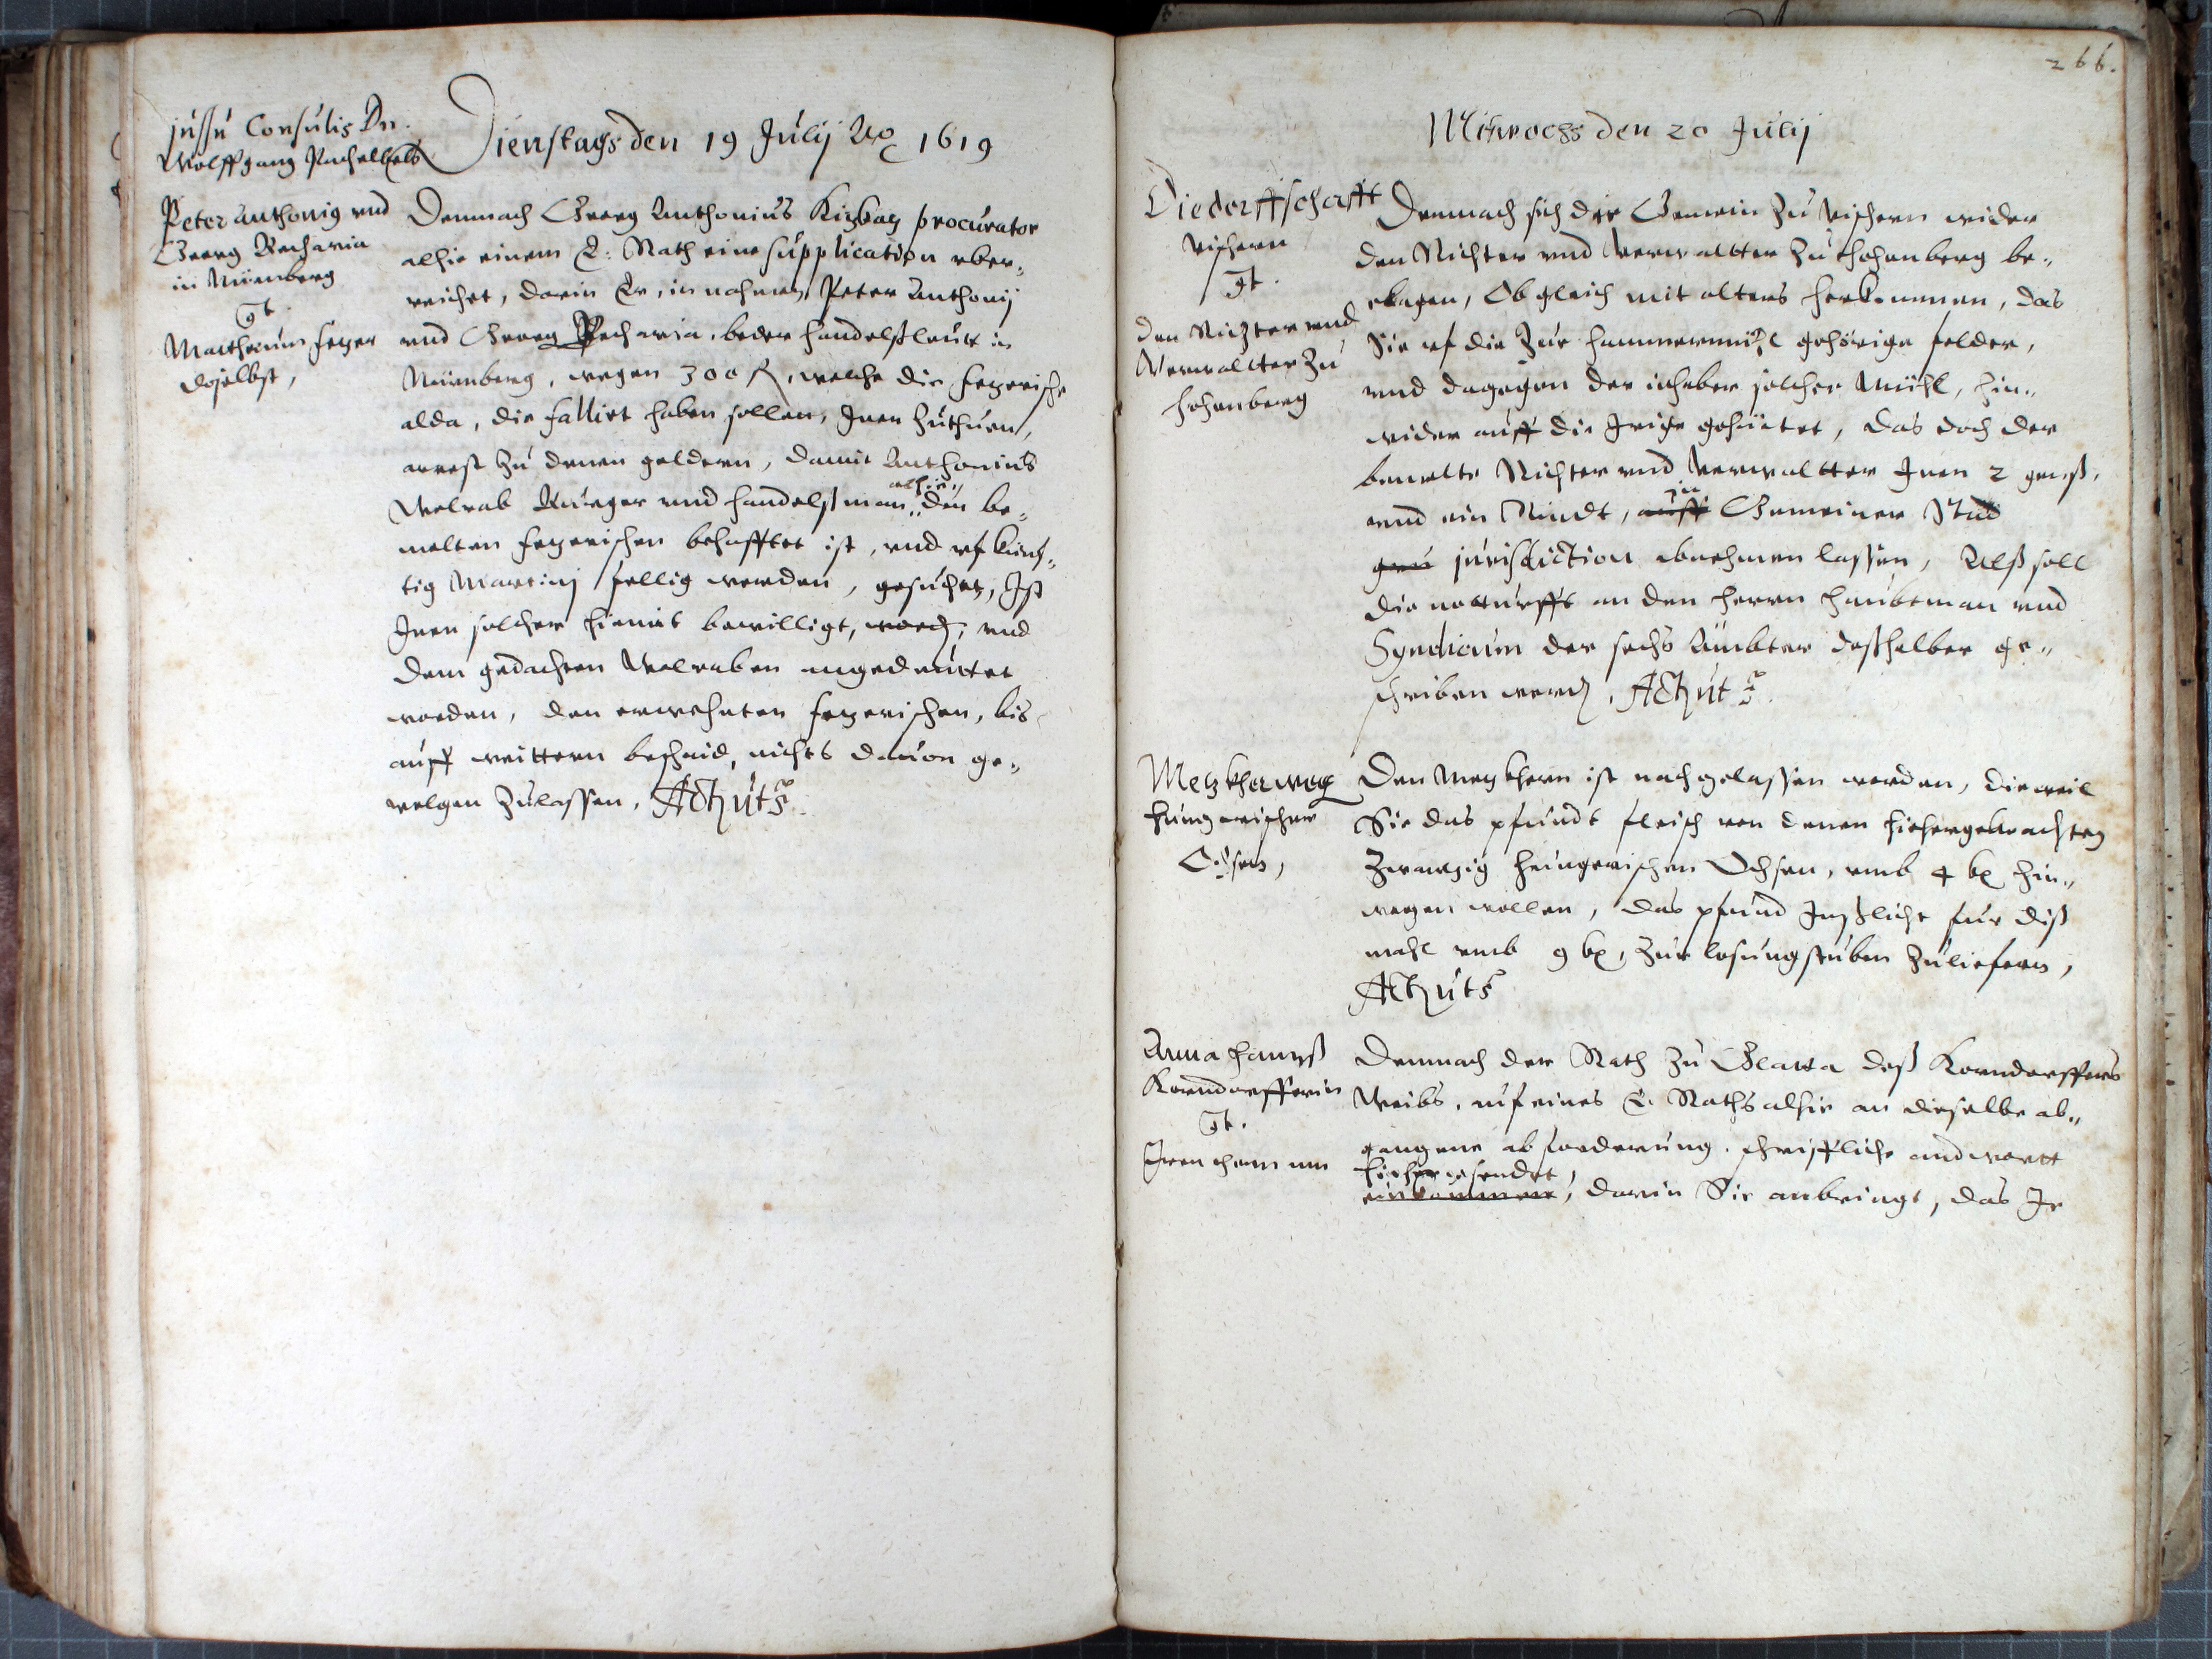 jussu Consulis Dn.
Wolffgang Pachelbels
Dienstags den 19 Julij Ao 1619
Peter Anthonij vnd
Georg Pecharia
in Nürmberg
gt.
Mattheum fezer
doselbst,
Demnach Georg Anthonius procurator
alhie einem E: Rath eine supplication vber„
reichet, darin Er, in nahmen Peter Anthonij
vnd Georg Pecharia, beder handelsleut in
Nürmberg, wegen 300 fl, welche die fezerische
alda, die fallirt haben sollen, Inen zuthuen,
arrest zu denen geldern, damit Anthonius
alhie„
Welrab Burger vnd handelsman„ den be„
melten fezerischen behafftet ist, vnd vf künf„
tig Martinj fellig werden, gesuchet, Ist
Inen solcher hiemit bewilligt, word, vnd
dem gedachten Welraben angedeuttet
worden, den erwehnten fezerischen, bis
auff weittern beschaid, nichts dauon ge„
uolgen zulassen, Act. ut s.
266.
Mitwochs den 20 Julij
Die dorffschafft
vischern
gt.
den Richter vnd
Verwaltter zu
hohenberg
Demnach sich die Gemein zu vischern wider
den Richter vnd Verwaltter zu hohenberg be„
clagen, Ob gleich mit alters herkommen, das
Sie vf die zur hammermühl gehörige felder,
vnd dagegen der inhaber solcher Mühl, hin„
wider auff die Irige gehüetet, das doch der
bemelte Richter vnd Verwaltter Inen 2 genß,
in
vnd ein Rindt, auff Gemeiner Stad
jurisdiction abnehmen lassen, Alß soll
die notturfft an den herrn haubtman vnd
Syndicum der sechs Ämbter deßhalber ge„
schriben werd, Act. ut s.
Metzkher weg
hungerischer
Ochsen,
Den Metzkhern ist nachgelassen worden, dieweil
Sie das pfundt fleisch von denen hiehergebrachten
zwanzig hungerischen Ochsen, vmb 4 kr hin„
wegen wollen, das pfund Inßlicht fur diß
mahl vmb 9 kr, zur losungstuben zuliefern,
Act. ut s.
Anna Hannß
Korndorfferin
gt.
Iren eheman
Demnach der Rath zu deß Korndorffers
Weibs, auf eines E. Raths alhie an dieselbe ab„
gangene abforderung, schrifftliche andwortt
hiehergesendet,
einkommen, darin Sie anbringt, das Ir